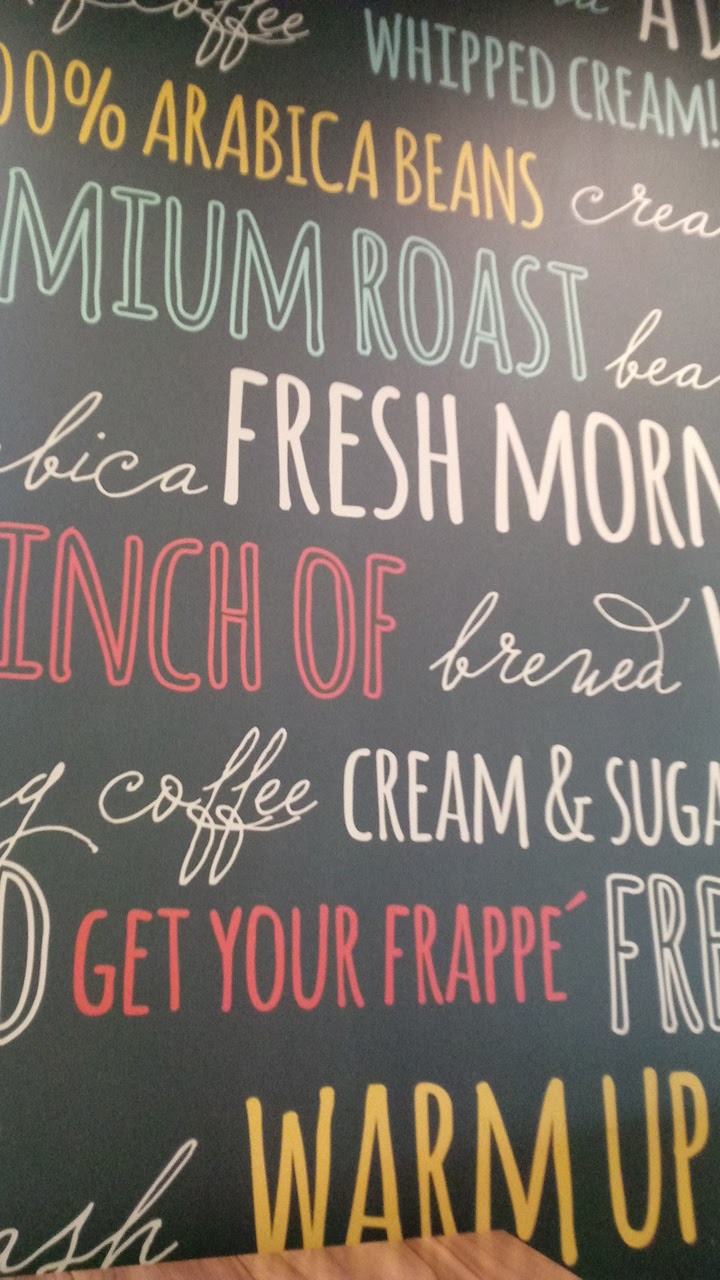 coffee A
WHIPPED CREAM!
00% ARABICA BEANS crea
MIUM ROAST bea
bica FRESH MORN
INCH OF brewed
g coffee CREAM & SUGA
D GET YOUR FRAPPE´ FRE
ash WARM UP